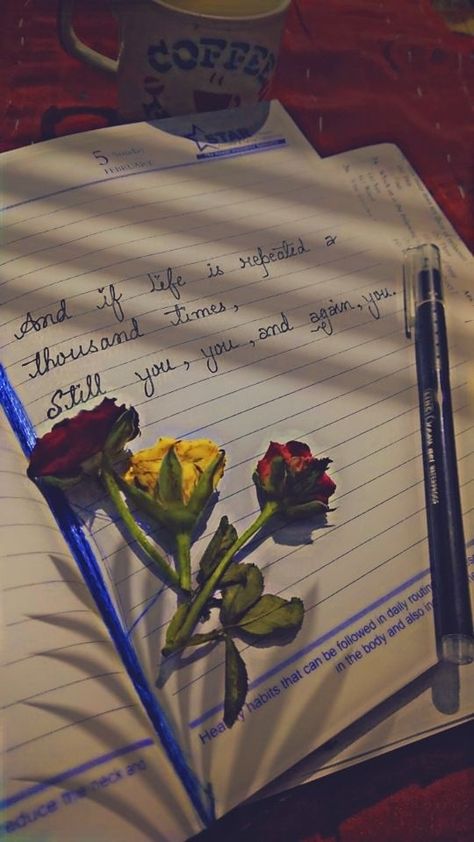 COFFEE
5 Sunday
FEBRUARY
STAR
And if life is repeated a
thousand times,
Still you, you, and again, you.
Healthy habits that can be followed in daily routin
in the body and also in
educe the neck and